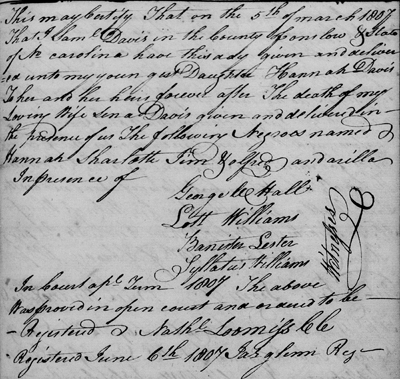 This may Certify That on the 5th of march 1807
That I Saml Davis in the County Onslow & State
of No carolina have this day given and deliver
ed unto my youngest Daughter Hannah Davis
To her and her heirs forever after The death of my
Loving Wife Lena Davis given and delivered in
the presence of us The following Negroes named
Hannah Sharlotte Tim & and arilla
In presence of
George W Hall
Lott Williams
Banister Lester
Syllatus Williams
Witnesses
In Court apl Term 1807 The above
Was provd in open court and ordered to be
Registered Nathl Loomiss Clk
Registered June 6th 1807 Jas glenn Regr